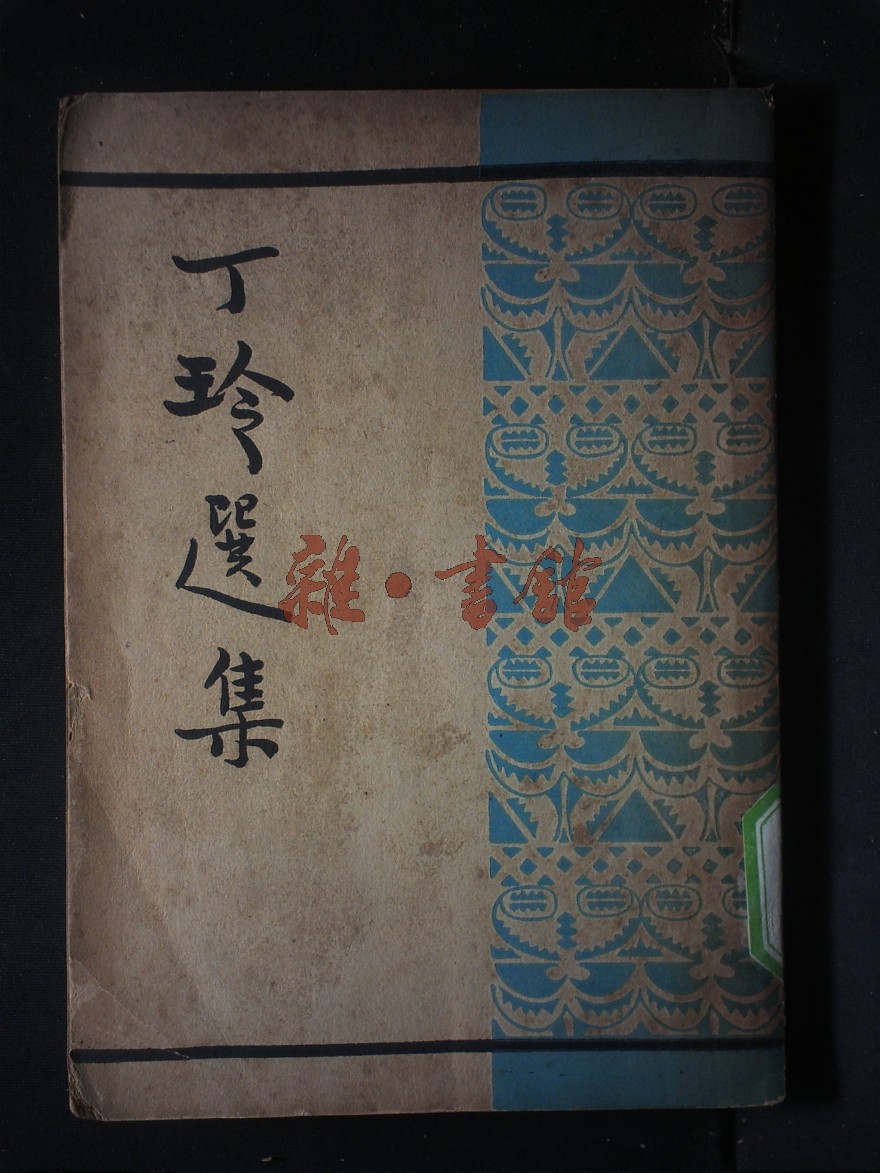 丁玲選集
雜·書館